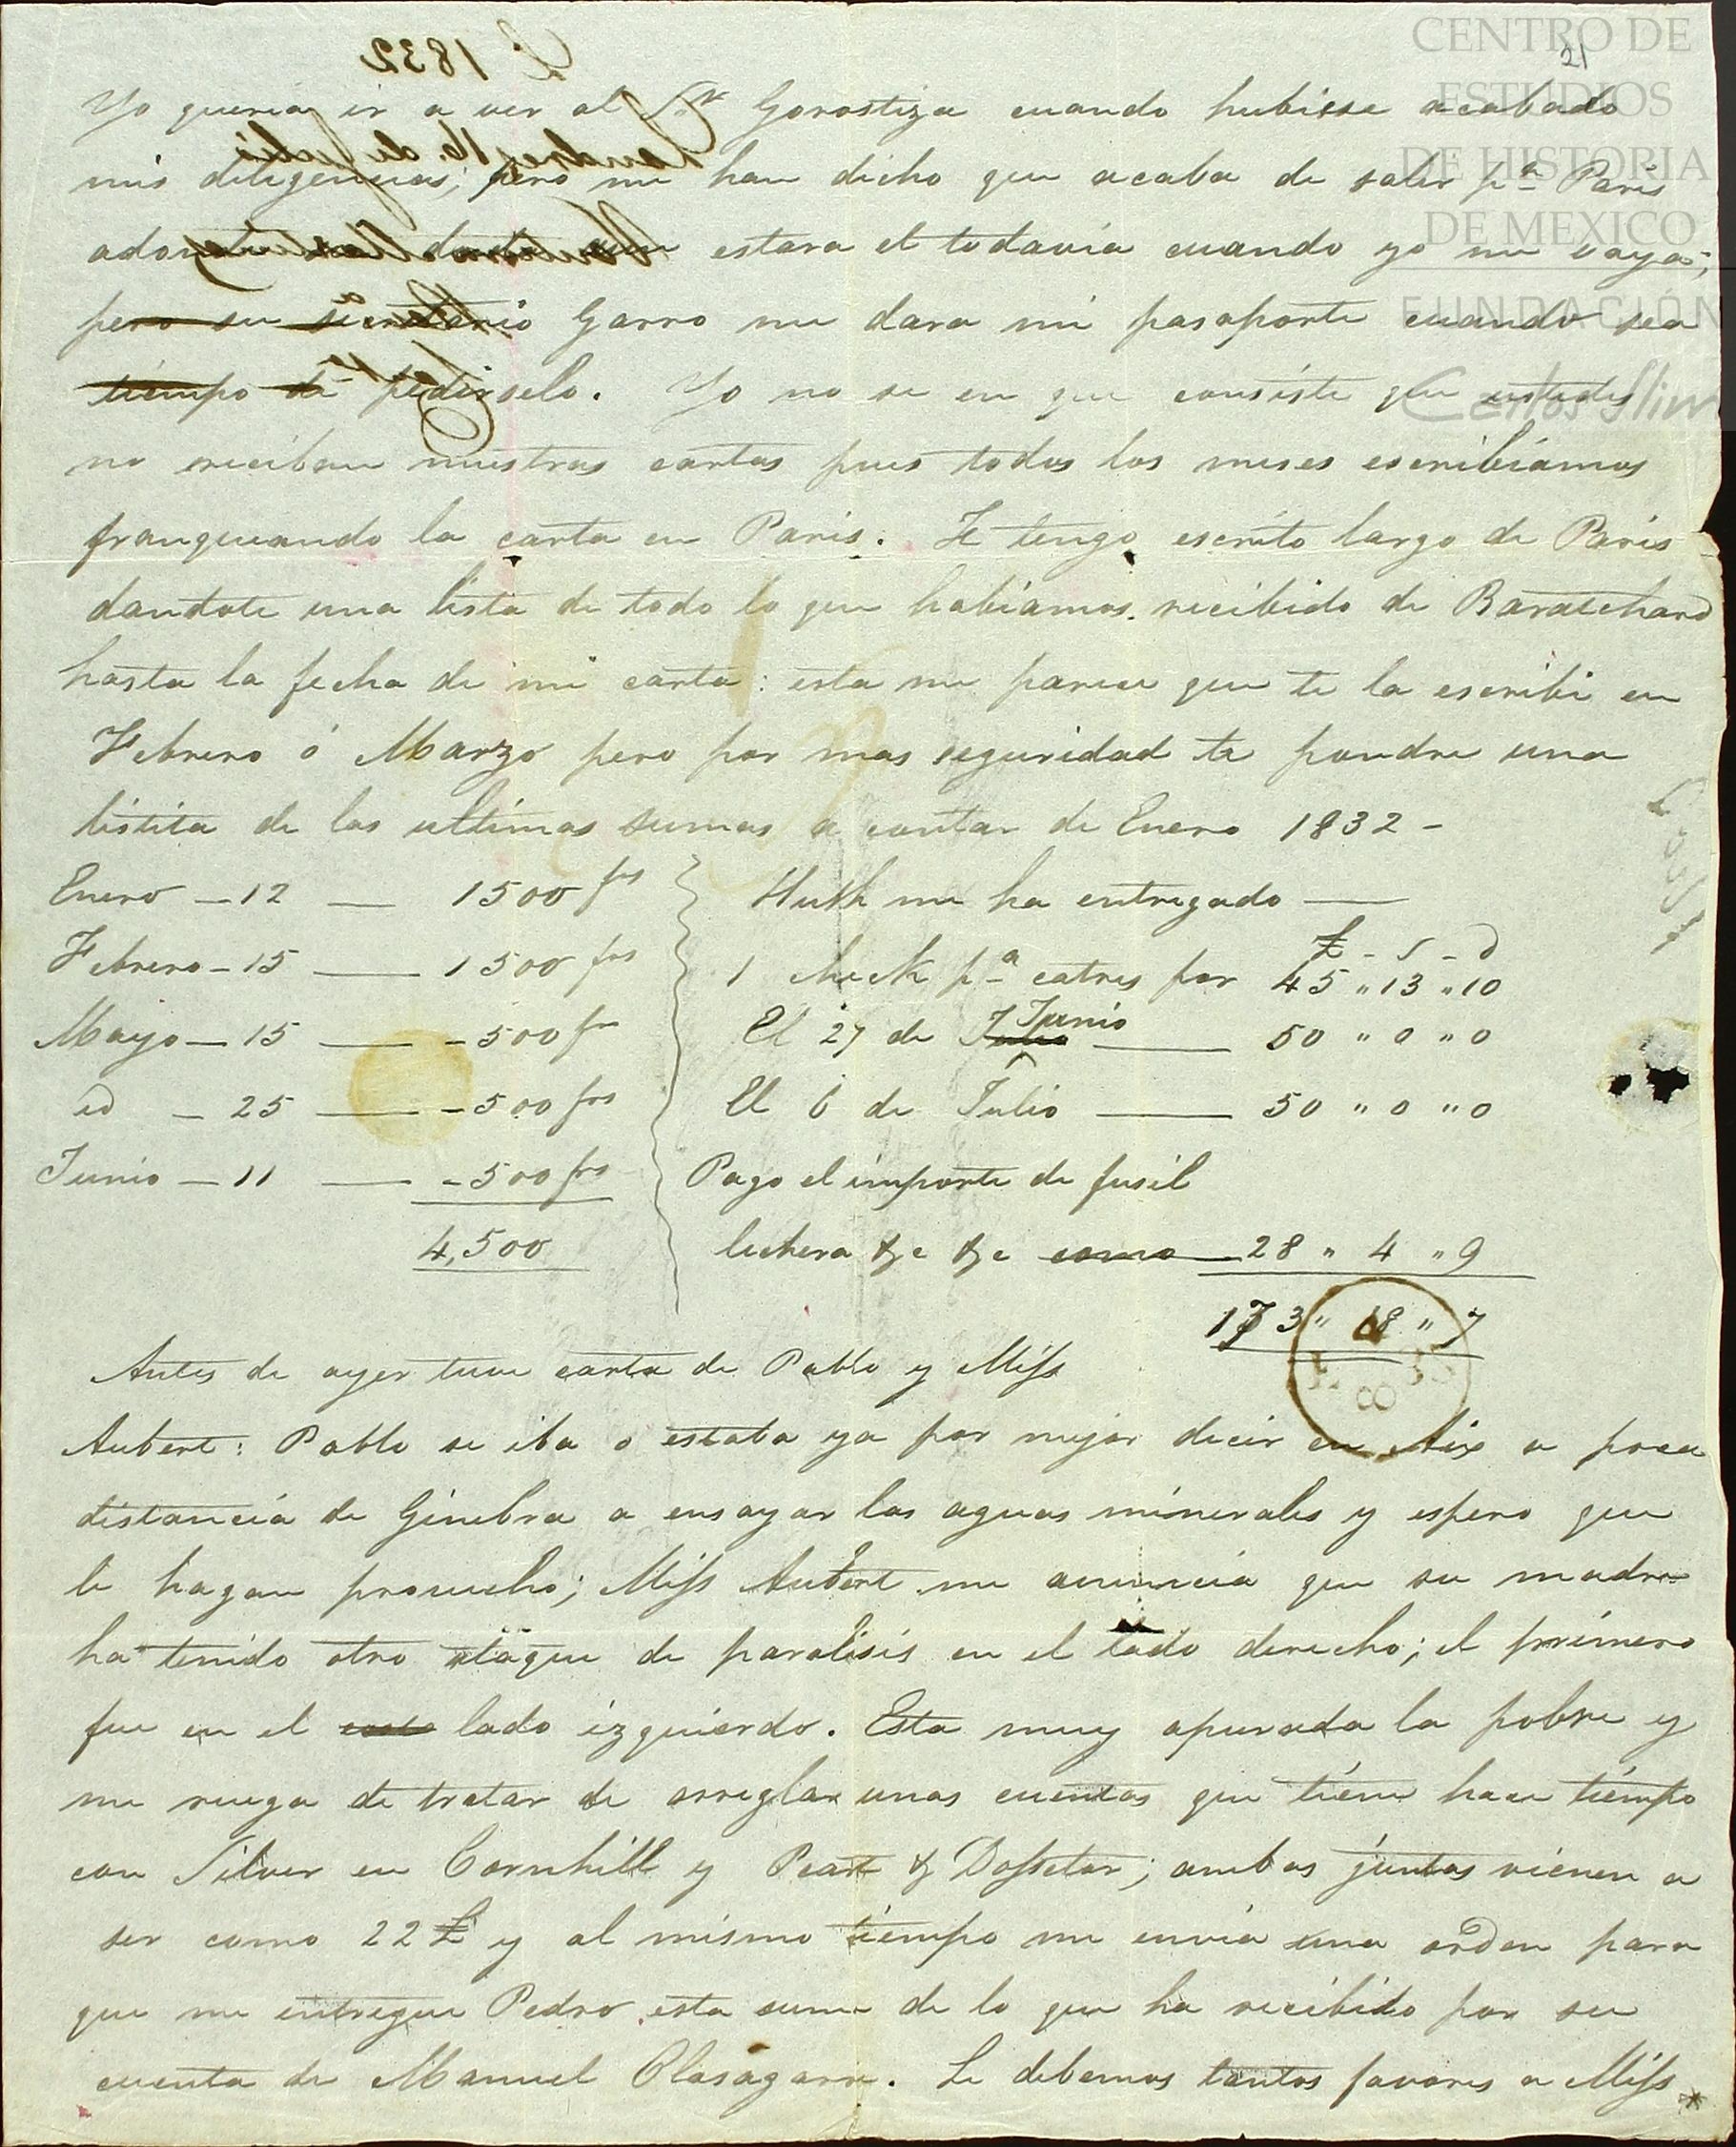 CENTRO DE
ESTUDIOS
DE HISTORIA
DE MEXICO
FUNDACIÓN
Carlos Slim
21
L 1832
Londres 16. de Julio
Yo queria ir a ver al Sr Gorostiza cuando hubiese acabado
mis diligencias; pero me han dicho que acaba de salir pa Paris
adonde estara el todavia cuando yo me vaya;
pero su secretario Garro me dara mi pasaporte cuando sea
tiempo de pedirselo. Yo no se en que consiste que ustedes
no reciban nuestras cartas pues todos los meses escribiamos
franqueando la carta en Paris. Te tengo escrito largo de Paris
dandote una lista de todo lo que habiamos recibido de Baraichard
hasta la fecha de mi carta: esta me parece que te la escribi en
Febrero ó Marzo pero por mas seguridad te pondre una
listita de las ultimas sumas a contar de Enero 1832 -
Enero - 12 — 1500 frs
Febrero - 15 — 1500 frs
Mayo - 15 — - 500 frs
id - 25 — - 500 frs
Junio - 11 — - 500 frs
4,500
Huth me ha entregado —
£ - s - d
1 check pa catres por 45 " 13 " 10
El 27 de Junio — 50 " 0 " 0
El 6 de Julio — 50 " 0 " 0
Pago el importe de fusil
lechera &c &c como — 28 " 4 " 9
173 " 18 " 7
Antes de ayer tuve carta de Pablo y Miss
Aubert: Pablo se iba o estaba ya por mejor decir en Aix a poca
distancia de Ginebra a ensayar las aguas minerales y espero que
le hagan provecho; Miss Aubert me anuncia que su madre
ha tenido otro ataque de paralisis en el lado derecho; el primero
fue en el lado izquierdo. Esta muy apurada la pobre y
me ruega de tratar de arreglar unas cuentas que tiene hace tiempo
con Silver en Cornhill y Peart & Dossetor; ambas juntas vienen a
ser como 22 £ y al mismo tiempo me envia una orden para
que me entregue Pedro esta suma de lo que ha recibido por su
cuenta de Manuel Olasagarre. Le debemos tantos favores a Miss *